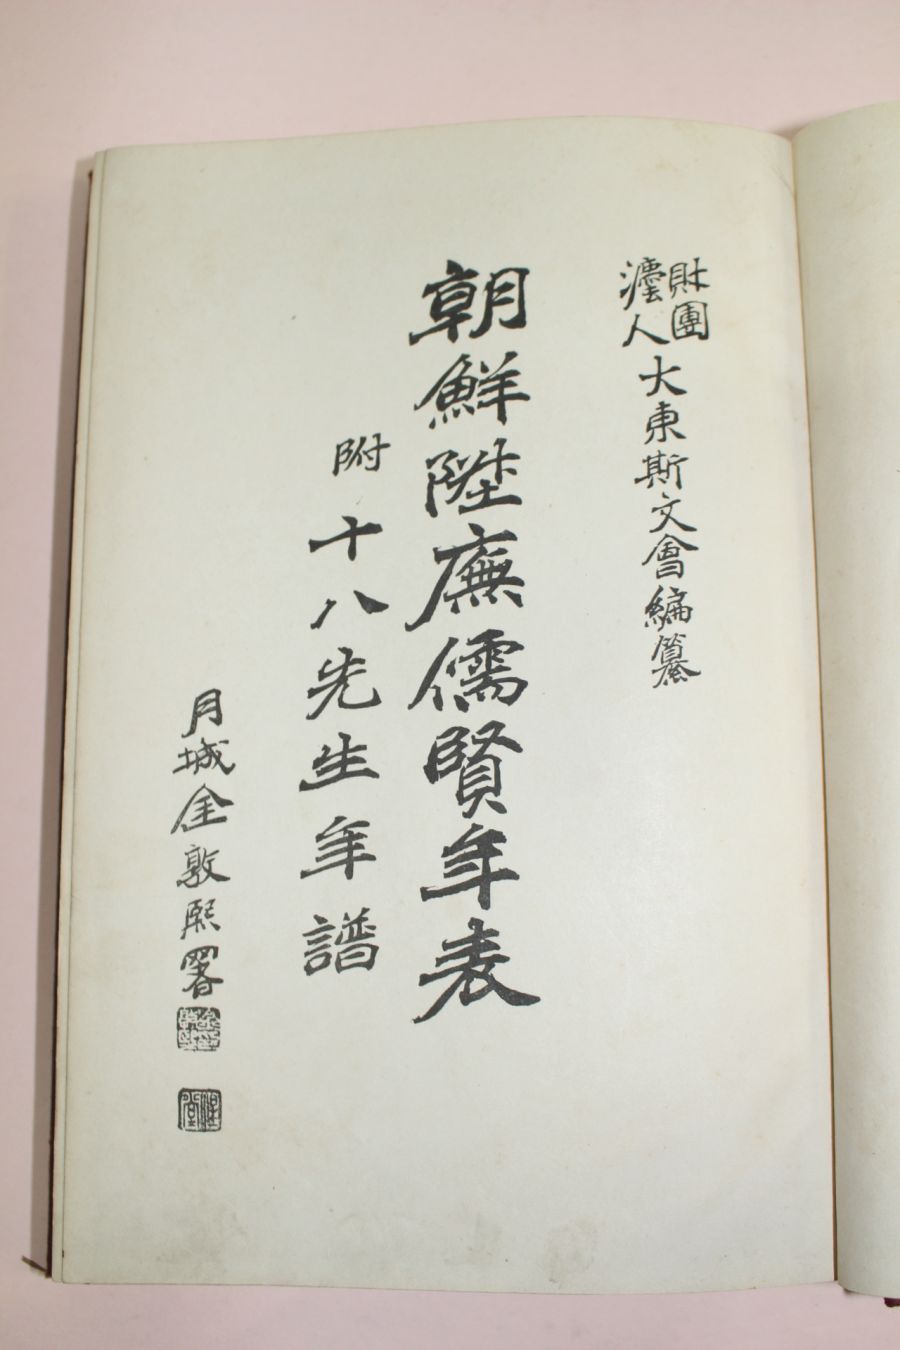 財團灋人大東斯文會編纂
朝鮮陞廡儒賢年表
附十八先生年譜
月城金敦熙署
惺堂